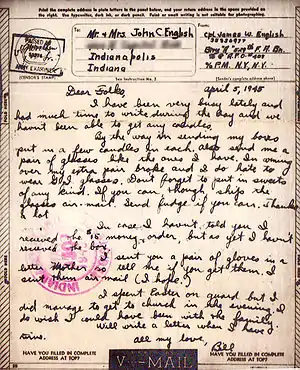 Print the complete address in plain letters in the panel below, and your return address in the space provided on the right. Use typewriter, dark ink, or dark pencil. Faint or small writing is not suitable for photographing.
To:
From
Mr. & Mrs. John C. English
Indianapolis
Indiana
Cpl James W. English
N.Y., N.Y.
PASSED BY
ARMY EXAMINER
(CENSOR'S STAMP)
See Instruction No. 2
(Sender's complete address above)
April 5, 1945
Dear Folks,
I have been very busy lately and
had much time to write during the day and we
havn't been able to get any candles.
By the way in sending my boxes
put in a few candles in each. Also send me a
pair of glasses like the ones I have. In
over my extra pair broke and I do hate to
wear GI glasses. Don't forget to put in sweets
of any kind. If you can though, ship the
glasses air-mail. Send fudge if you can. Thanks
a lot.
In case I havn't told you I
received the $15 money-order, but as yet I havn't
received the box.
I sent you a pair of gloves in a
letter Mother so tell me if you get them. I
sent them air mail (I hope.)
I spent Easter on guard but I
did manage to get to church in the evening. I
do wish I could have been with the family.
Will write a letter when I have
time.
all my love,
Bill
HAVE YOU FILLED IN COMPLETE
ADDRESS AT TOP?
V-MAIL
HAVE YOU FILLED IN COMPLETE
ADDRESS AT TOP?